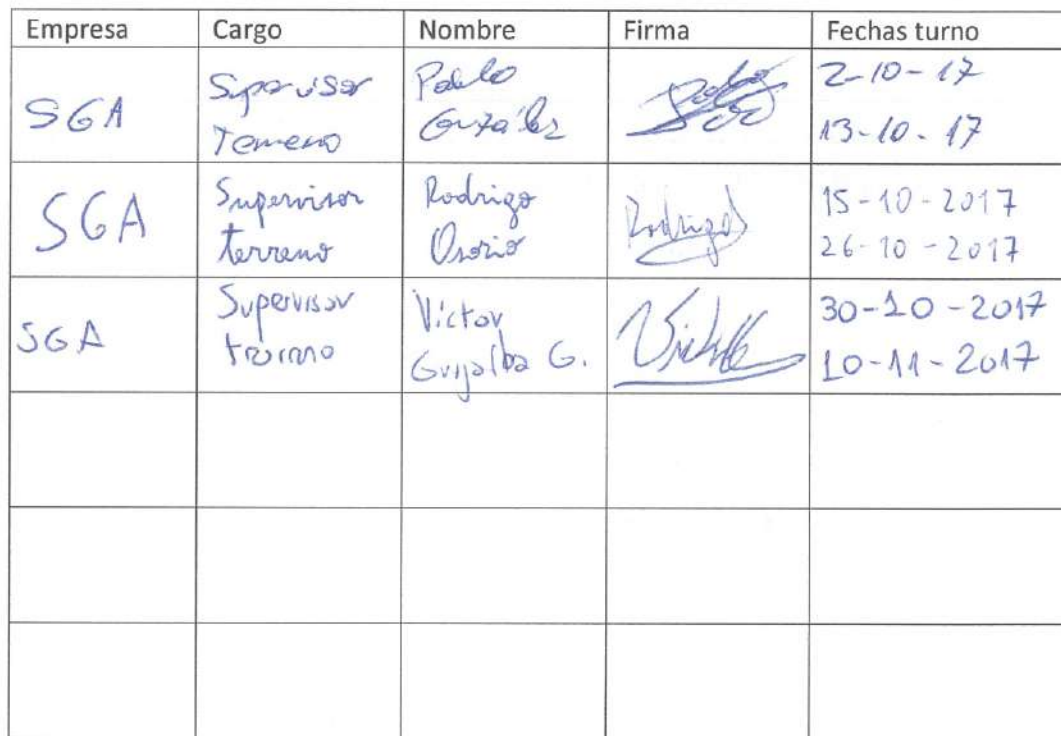 Empresa Cargo Nombre Firma Fechas turno
SGA Supervisor Terreno Pablo González 2-10-17
13-10-17
SGA Supervisor terreno Rodrigo Osorio Rodrigo 15-10-2017
26-10-2017
SGA Supervisor Víctor Grijalba G. 30-10-2017
10-11-2017